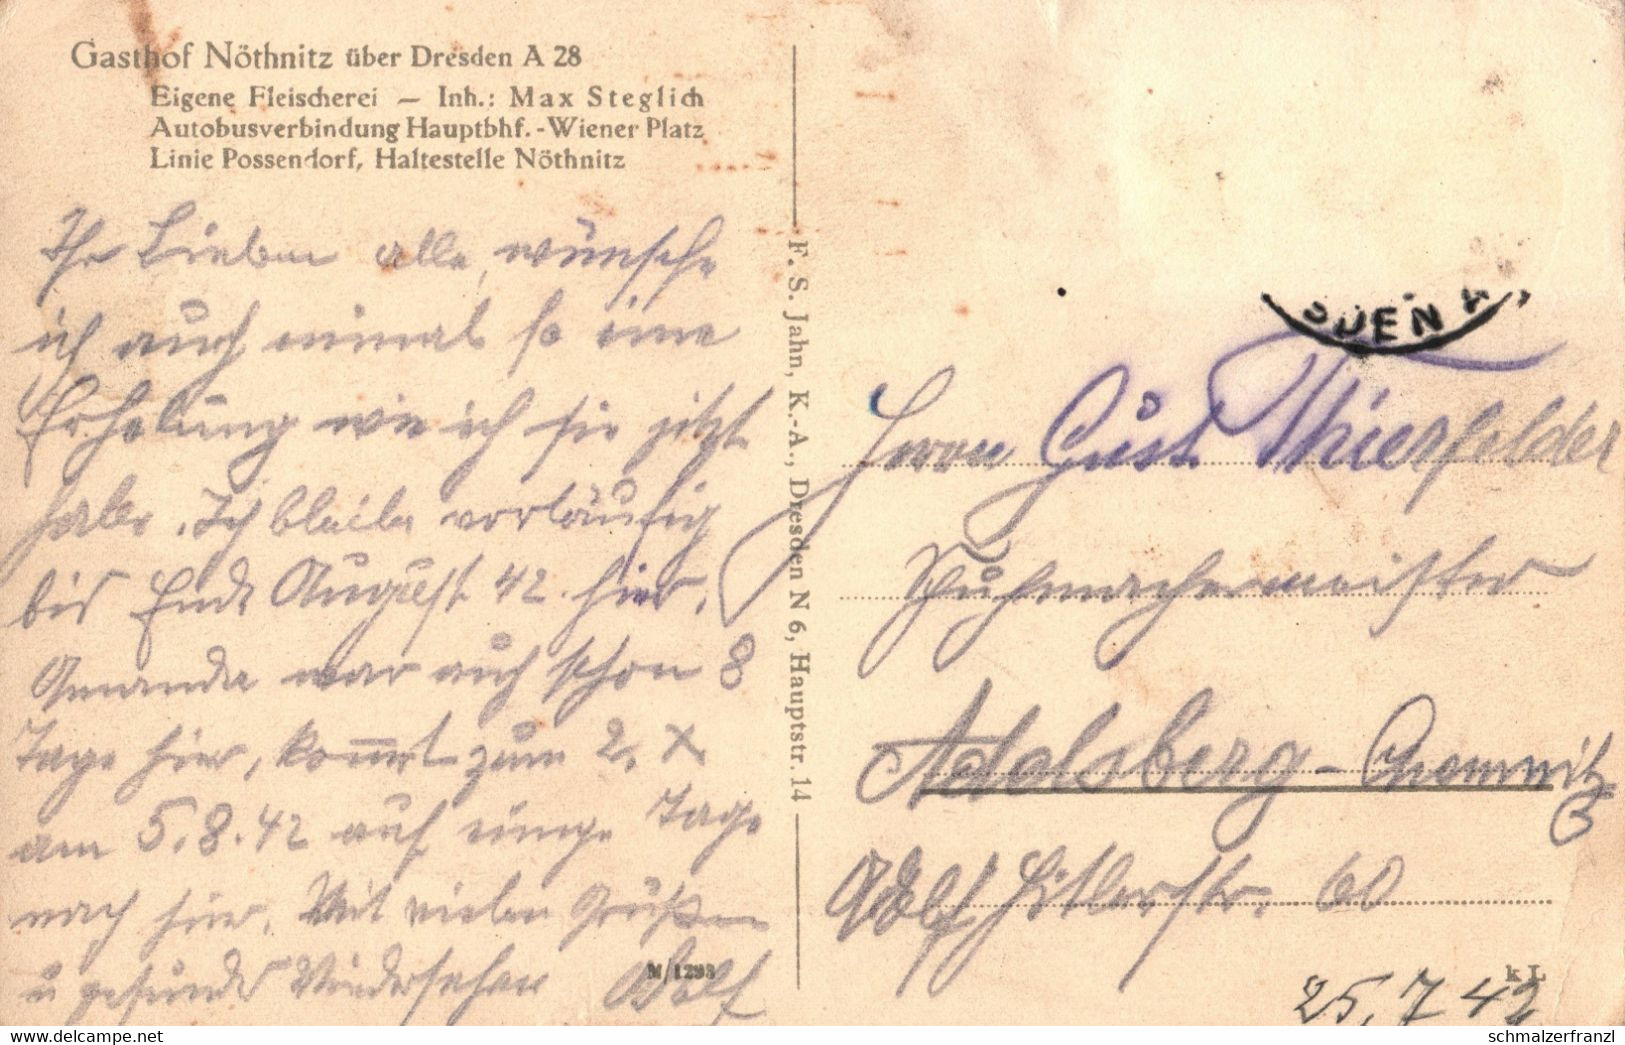 Gasthof Nöthnitz über Dresden A 28
Eigene Fleischerei — Inh.: Max Steglich
Autobusverbindung Hauptbhf.-Wiener Platz
Linie Possendorf, Haltestelle Nöthnitz
Ihr Lieben alle, wünsche
ich auch einmal so eine
Erholung wie ich sie jetzt
habe. Ich bleibe vorläufig
bis Ende August 42 hier.
war auch schon 8
Tage hier, kommt zum 2. X
am 5.8.42 auf einige Tage
nach hier. Mit vielen Grüßen
u gesundes Wiedersehen
F. S. Jahn, K.-A., Dresden N 6, Hauptstr. 14
M/1293
SDEN A
Herrn Gust Thierfelder
Schuhmachermeister
Adelsberg-Chemnitz
Adolf Hitlerstr. 60
kL
25.7.42
hippostcard.com
schmalzerfranzl